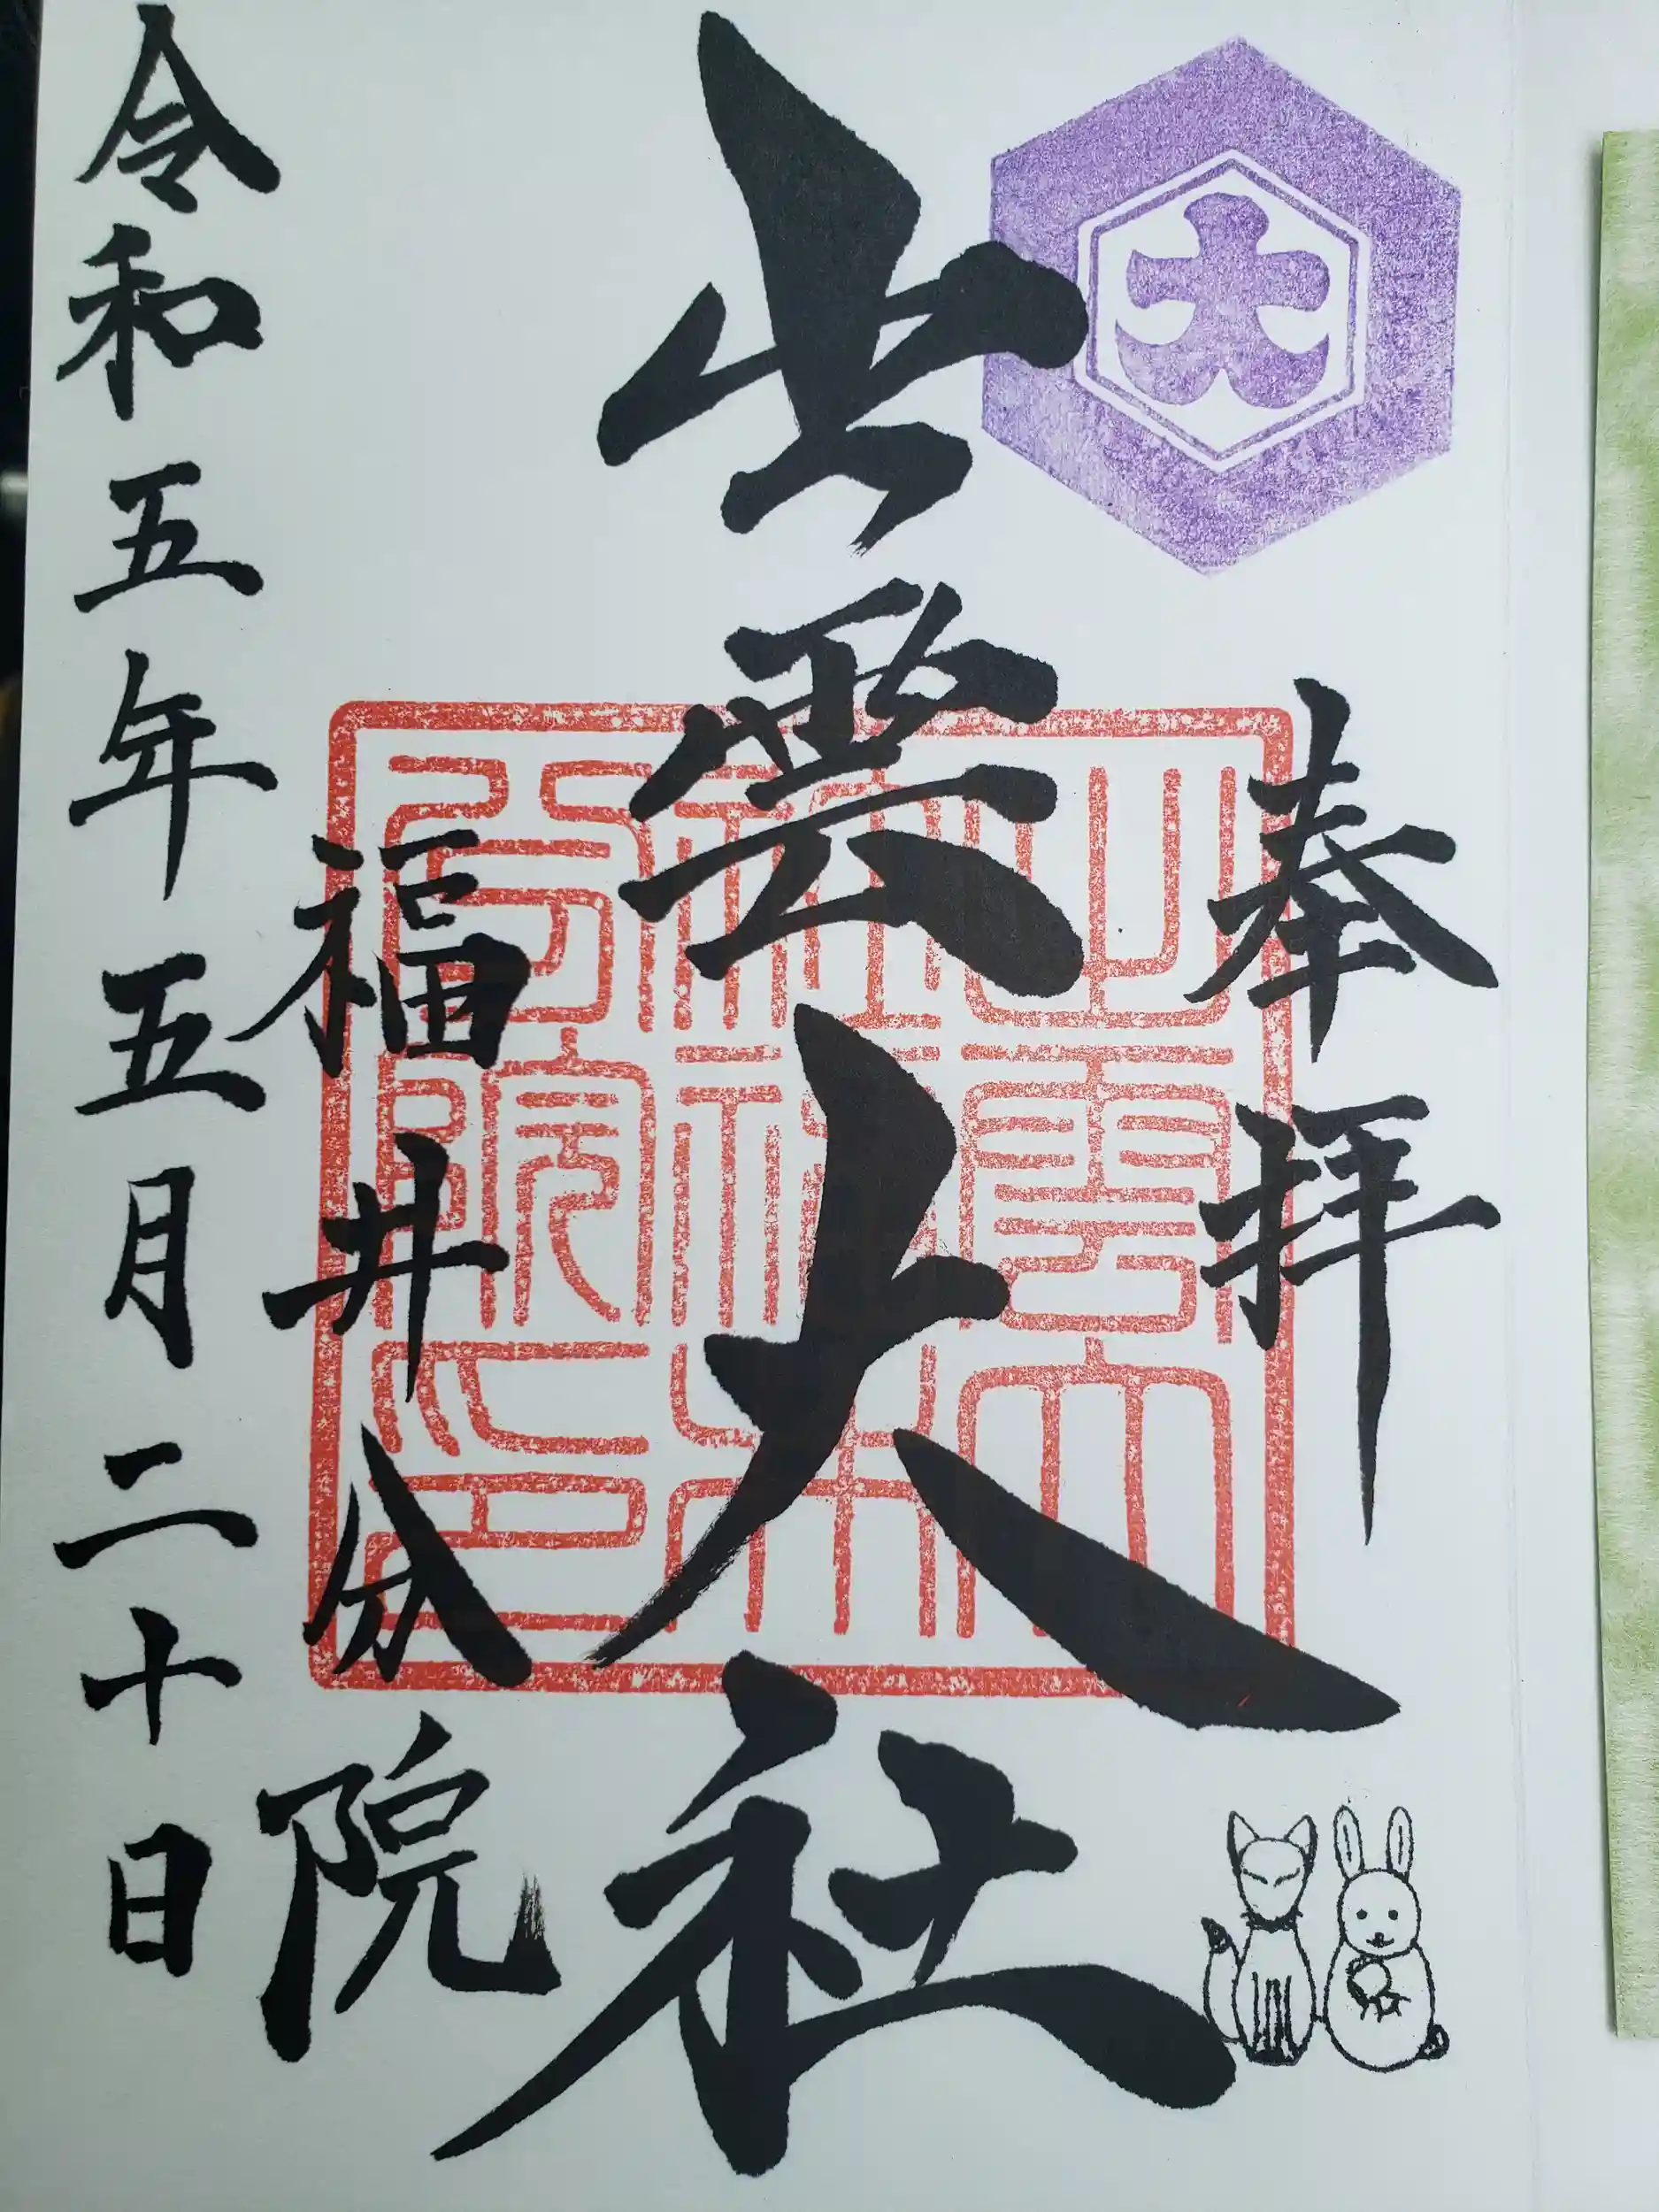 奉拝
大
出雲大社
福井分院
令和五年五月二十日
出雲大
社福井
分院之印